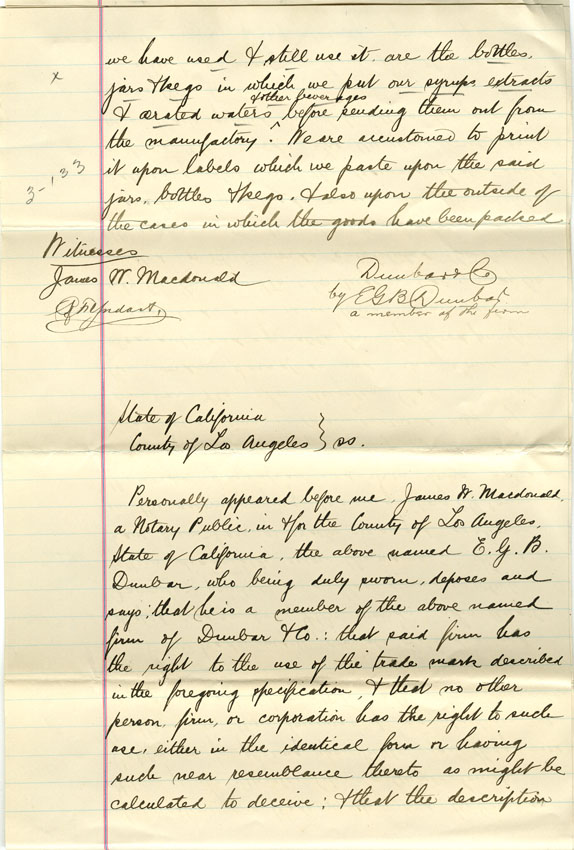 we have used & still use it are the bottles,
x
jars & kegs in which we put our syrups, extracts
& other beverages
& ærated waters ^ before sending them out from
the manufactory. We are accustomed to print
3-133
it upon labels which we paste upon the said
jars, bottles & kegs, & also upon the outside of
the cases in which the goods have been packed
Witnesses
James W. Macdonald
Dunbar & Co
by E G B Dunbar
a member of the firm
State of California
County of Los Angeles } ss.
Personally appeared before me, James W. Macdonald,
a Notary Public, in & for the County of Los Angeles,
State of California, the above named E. G. B.
Dunbar, who being duly sworn, deposes and
says; that he is a member of the above named
firm of Dunbar & Co.: that said firm has
the right to the use of the trade mark described
in the foregoing specification, & that no other
person, firm, or corporation has the right to such
use, either in the identical form or having
such near resemblance thereto as might be
calculated to deceive; & that the description